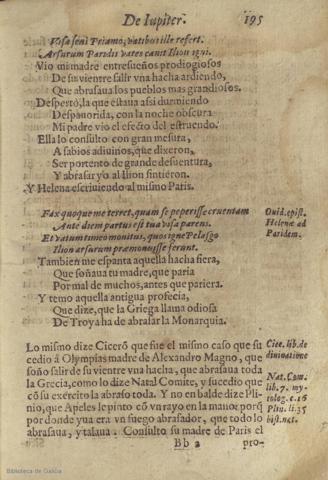 De Iupiter. 195
Vosa seni Priamo, vatibus ille refert.
Arsurum Paridis vates canit Ilion igni.
Vio mi madre entresueños prodigiosos
De su vientre salir vna hacha ardiendo,
Que abrasaua los pueblos mas grandiosos.
Despertò, la que estaua assi durmiendo
Despauorida, con la noche obscura
Mi padre vio el efecto del estruendo.
Ella lo consulto con gran mesura,
A sabios adiuinos, que dixeron,
Ser portento de grande desuentura,
Y abrasar yo al Ilion sintièron.
Y Helena escriuiendo al mismo Paris.
Fax quoque me terret, quam se peperisse cruentam
Ante diem partus est tua visa parens.
Et vatum timeo monitus, quos igne Pelasgo
Ilion arsurum præmonuisse ferunt.
Ouid. epist.
Helenæ ad
Paridem.
Tambien me espanta aquella hacha fiera,
Que soñaua tu madre, que paria
Por mal de muchos, antes que pariera.
Y temo aquella antigua profecia,
Que dize, que la Griega llama odiosa
De Troya ha de abrasar la Monarquia.
Lo mismo dize Cicerõ que fue el mismo caso que su
cedio á Olympias madre de Alexandro Magno, que
soño salir de su vientre vna hacha, que abrasaua toda
la Grecia, como lo dize Natal Comite, y sucedio que
cõ su exèrcito la abraso toda. Y no en balde dize Pli-
nio, que Apeles le pinto cõ vn rayo en la mano: porq̃
por donde yua era vn fuego abrasador, que todo lo
abrasaua, y talaua. Consulto su madre de Paris el
Cice. lib. de
diuinatione
Nat. Com.
lib. 7. my-
tolog. c. 16
Plin. li. 35
hist. nat.
Bb 2 pro-
Biblioteca de Galicia